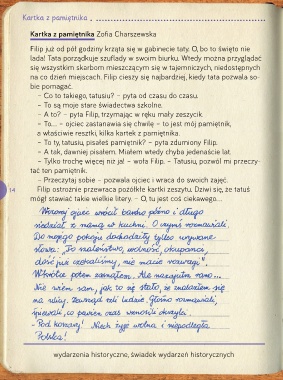 Kartka z pamiętnika
Kartka z pamiętnika Zofia Charszewska
Filip już od pół godziny krząta się w gabinecie taty. O, bo to święto nie
lada! Tata porządkuje szuflady w swoim biurku. Wtedy można przyglądać
się wszystkim skarbom mieszczącym się w tajemniczych, niedostępnych
na co dzień miejscach. Filip cieszy się najbardziej, kiedy tata pozwala so-
bie pomagać.
– Co to takiego, tatusiu? – pyta od czasu do czasu.
– To są moje stare świadectwa szkolne.
– A to? – pyta Filip, trzymając w ręku mały zeszycik.
– To... – ojciec zastanawia się chwilę – to jest mój pamiętnik,
a właściwie resztki, kilka kartek z pamiętnika.
– To ty, tatusiu, pisałeś pamiętnik? – pyta zdumiony Filip.
– A tak, dawniej pisałem. Miałem wtedy chyba jedenaście lat.
– Tylko trochę więcej niż ja! – woła Filip. – Tatusiu, pozwól mi przeczy-
tać ten pamiętnik.
– Przeczytaj sobie – pozwala ojciec i wraca do swoich zajęć.
Filip ostrożnie przewraca pożółkłe kartki zeszytu. Dziwi się, że tatuś
mógł stawiać takie wielkie litery. – O, tu jest coś ciekawego...
14
Wczoraj ojciec wrócił bardzo późno i długo
siedział z mamą w kuchni. O czymś rozmawiali.
Do mojego pokoju dochodziły tylko urywane
słowa: To szaleństwo, wolność, okupanci,
dość już czekaliśmy, nie macie rozwagi".
Wkrótce potem zasnąłem. Ale nazajutrz rano...
Nie wiem sam, jak to się stało, że znalazłem się
na ulicy. Zewsząd szli ludzie. Głośno rozmawiali,
śpiewali, co pewien czas wznosili okrzyki.
– Pod koszary! Niech żyje wolna i niepodległa
Polska!
wydarzenia historyczne, świadek wydarzeń historycznych